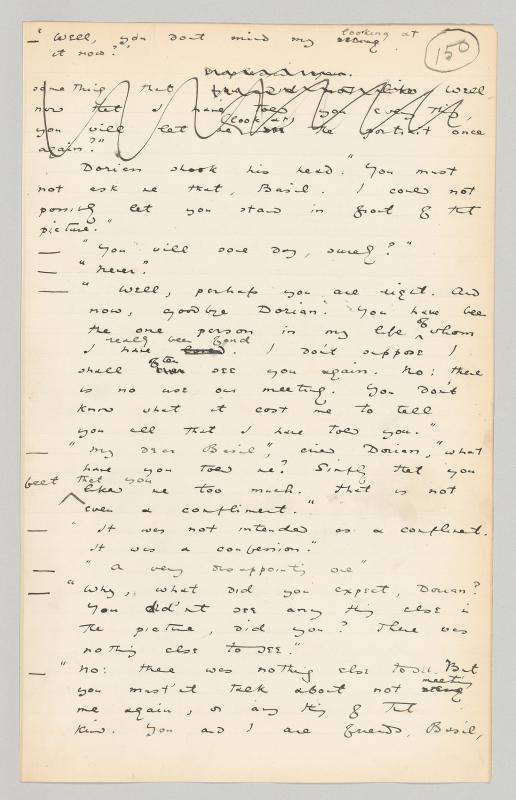 150
— "Well, you don't mind my seeing looking at
it now?"
something that Well
now that I have told you everything,
you will let me see look at the portrait once
again?"
Dorian shook his head. "You must
not ask me that, Basil. I could not
possibly let you stand in front of that
picture."
— "You will some day, surely?"
— "Never."
— "Well, perhaps you are right. And
now, goodbye Dorian. You have been
the one person in my life of whom
I have loved really been fond. I don't suppose I
shall ever often see you again. No: there
is no use our meeting. You don't
know what it cost me to tell
you all that I have told you."
— "My dear Basil", cried Dorian, "what
have you told me? Simply that you
felt that you
like me too much. That is not
even a compliment."
— "It was not intended as a compliment.
It was a confession."
— "A very disappointing one"
— "Why, what did you expect, Dorian?
You didn't see any thing else in
the picture, did you? There was
nothing else to see."
— "No: there was nothing else to see. But
you must'nt talk about not seeing meeting
me again, or any thing of that
kind. You and I are friends, Basil,